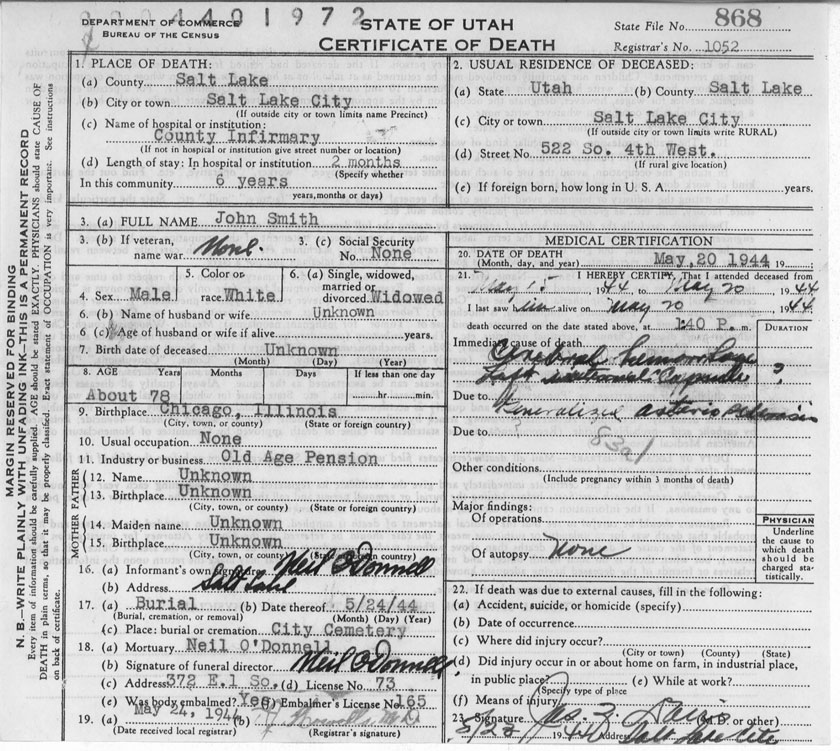 2204401972
DEPARTMENT OF COMMERCE
BUREAU OF THE CENSUS
STATE OF UTAH
CERTIFICATE OF DEATH
State File No. 868
Registrar's No. 1052
MARGIN RESERVED FOR BINDING
N. B.—WRITE PLAINLY WITH UNFADING INK—THIS IS A PERMANENT RECORD
Every item of information should be carefully supplied. AGE should be stated EXACTLY. PHYSICIANS should state CAUSE OF
DEATH in plain terms, so that it may be properly classified. Exact statement of OCCUPATION is very important. See instructions
on back of certificate.
1. PLACE OF DEATH:
(a) County Salt Lake
(b) City or town Salt Lake City
(If outside city or town limits name Precinct)
(c) Name of hospital or institution:
County Infirmary
(If not in hospital or institution give street number or location)
(d) Length of stay: In hospital or institution 2 months
(Specify whether
In this community 6 years
years, months or days)
2. USUAL RESIDENCE OF DECEASED:
(a) State Utah (b) County Salt Lake
(c) City or town Salt Lake City
(If outside city or town limits write RURAL)
(d) Street No. 522 So. 4th West.
(If rural give location)
(e) If foreign born, how long in U. S. A. years.
3. (a) FULL NAME John Smith
3. (b) If veteran,
name war None.
3. (c) Social Security
No. None
4. Sex Male
5. Color or
race White
6. (a) Single, widowed,
married or
divorced Widowed
6. (b) Name of husband or wife Unknown
6. (c) Age of husband or wife if alive years.
7. Birth date of deceased Unknown
(Month) (Day) (Year)
8. AGE Years Months Days If less than one day
About 78 hr. min.
9. Birthplace Chicago, Illinois
(City, town, or county) (State or foreign country)
10. Usual occupation None
11. Industry or business Old Age Pension
FATHER
12. Name Unknown
13. Birthplace Unknown
(City, town, or county) (State or foreign country)
MOTHER
14. Maiden name Unknown
15. Birthplace Unknown
(City, town, or county) (State or foreign country)
16. (a) Informant's own signature Neil O'Donnell
(b) Address Salt Lake
17. (a) Burial (b) Date thereof 5/24/44
(Burial, cremation, or removal) (Month) (Day) (Year)
(c) Place: burial or cremation City Cemetery
18. (a) Mortuary Neil O'Donnell
(b) Signature of funeral director Neil O'Donnell
(c) Address 372 E.1 So. (d) License No. 73
(e) Was body embalmed? Yes (f) Embalmer's License No. 165
19. (a) May 24, 1944 (b) M.D.
(Date received local registrar) (Registrar's signature)
MEDICAL CERTIFICATION
20. DATE OF DEATH
(Month, day, and year) May 20 1944 19
21. I HEREBY CERTIFY, That I attended deceased from
May 15 1944 to May 20 1944
I last saw him alive on May 20 1944
death occurred on the date stated above, at 1:40 P. m.
DURATION
Immediate cause of death
Cerebral hemorrhage
Left internal Capsule ?
Due to Generalized
Due to
83a1
Other conditions
(Include pregnancy within 3 months of death)
Major findings:
Of operations
Of autopsy None
PHYSICIAN
Underline
the cause to
which death
should be
charged sta-
tistically.
22. If death was due to external causes, fill in the following:
(a) Accident, suicide, or homicide (specify)
(b) Date of occurrence
(c) Where did injury occur?
(City or town) (County) (State)
(d) Did injury occur in or about home on farm, in industrial place,
in public place? (e) While at work?
(Specify type of place
(f) Means of injury
23. Signature Jas. Z. (M.D. or other)
5/23 1944 Address Salt Lake City